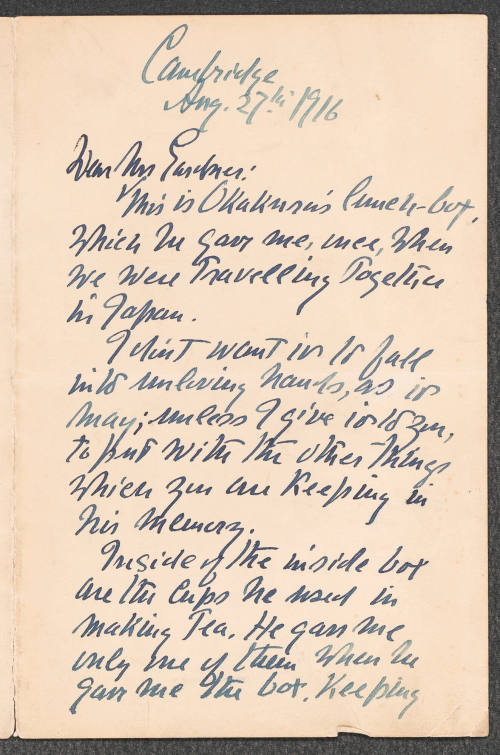 Cambridge
Aug. 27th 1916
Dear Mrs Gardner:
This is Okakura's lunch-box,
which he gave me, once, when
we were travelling together
in Japan.
I don't want it to fall
into unloving hands, as it
may; unless I give it to you,
to put with the other things
which you are keeping in
his memory.
Inside of the inside box
are the cups he used in
making Tea. He gave me
only one of them when he
gave me the box, keeping